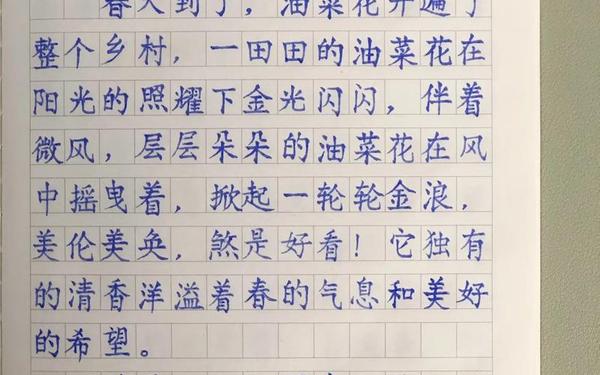 春天到了，油菜花开遍了
整个乡村，一田田的油菜花在
阳光的照耀下金光闪闪，伴着
微风，层层朵朵的油菜花在风
中摇曳着，掀起一轮轮金浪，
美伦美奂，煞是好看！它独有
的清香洋溢着春的气息和美好
的希望。